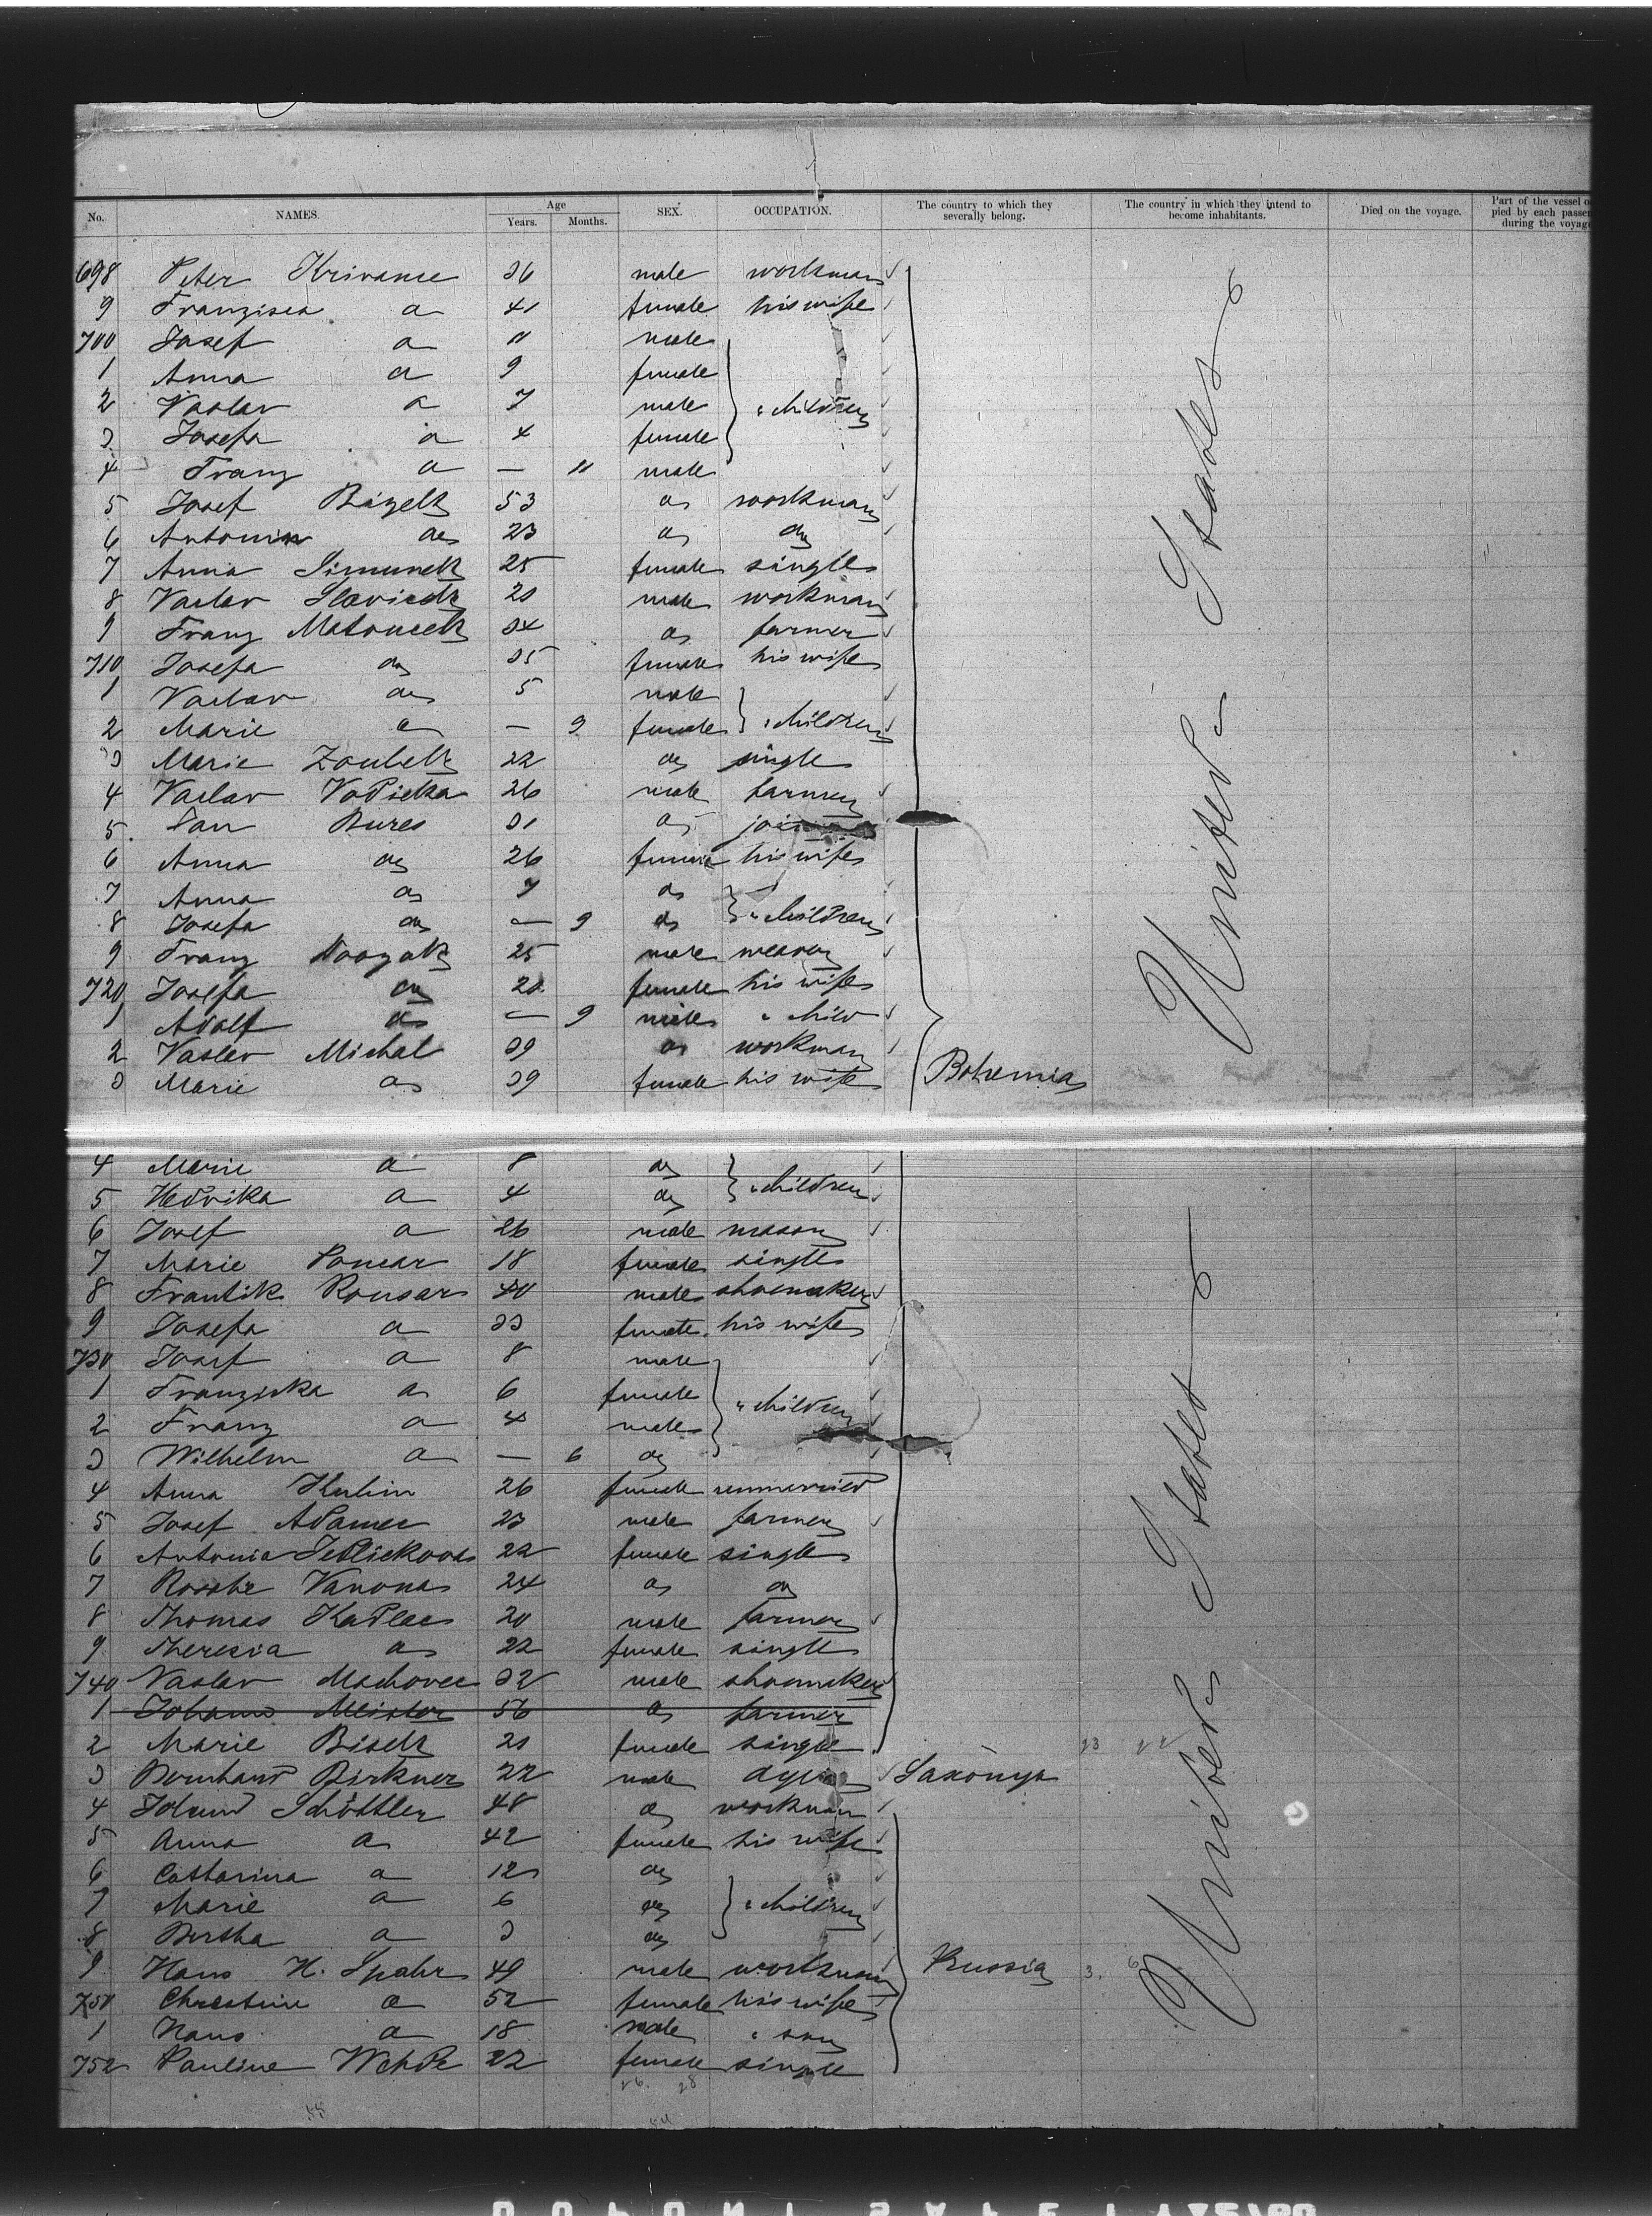 No. NAMES. Age Years. Months. SEX. OCCUPATION. The country to which they severally belong. The country in which they intend to become inhabitants. Died on the voyage. Part of the vessel o pied by each passe during the voyage
698 Peter Krivanec 36 male workman
9 Franzisca a 41 female his wife
700 Josef a 11 male
1 Anna a 9 female
2 Vaslav a 7 male " children
3 Josefa a 4 female
4 Franz a — 11 male
5 Josef 53 do workman
6 Antonin do 23 do do
7 Anna Simunek 25 female single
8 Vaclav 21 male workman
9 Franz Matoucek 34 do farmer
710 Josefa do 35 female his wife
1 Vaclav do 5 male
2 Marie do — 9 female " children
3 Marie Zoubek 22 do single
4 Vaclav Vodicka 26 male farmer
5 Jan Bures 31 do
6 Anna do 26 female his wife
7 Anna do 7 do
8 Josefa do — 9 do " children
9 Franz 25 male weaver
720 Josefa do female his wife
1 Adolf do — 9 male " child
2 Vaslav Michal 39 do workman
3 Marie do 39 female his wife Bohemia
4 Marie a 8 do
5 Hedvika a 4 do " children
6 Josef a 26 male mason
7 Marie 18 female single
8 Frantik Rousar 40 male shoemaker
9 Josefa a 33 female his wife
730 Josef a 8 male
1 Franziska a 6 female " children
2 Franz a 4 male
3 Wilhelm a — 6 do
4 Anna 26 female unmarried
5 Josef Adamec 23 male farmer
6 Antonia Jedlickova 22 female single
7 24 do do
8 Thomas Kadlec 20 male farmer
9 Theresia do 22 female single
740 Vaslav Machovec 32 male shoemaker
1 Johann Meister 56 do farmer
2 Marie 21 female single
3 Bernhard Birkner 22 male dyer Saxony
4 Schöttler 48 do workman
5 Anna a 42 female his wife
6 Catharina a 12 do
7 Marie a 6 do " children
8 Bertha a 3 do
9 Hans H. Spahr 49 male workman Prussia
750 Christine a 52 female his wife
1 Hans a 18 male " son
752 Pauline 22 female single
United States
United States